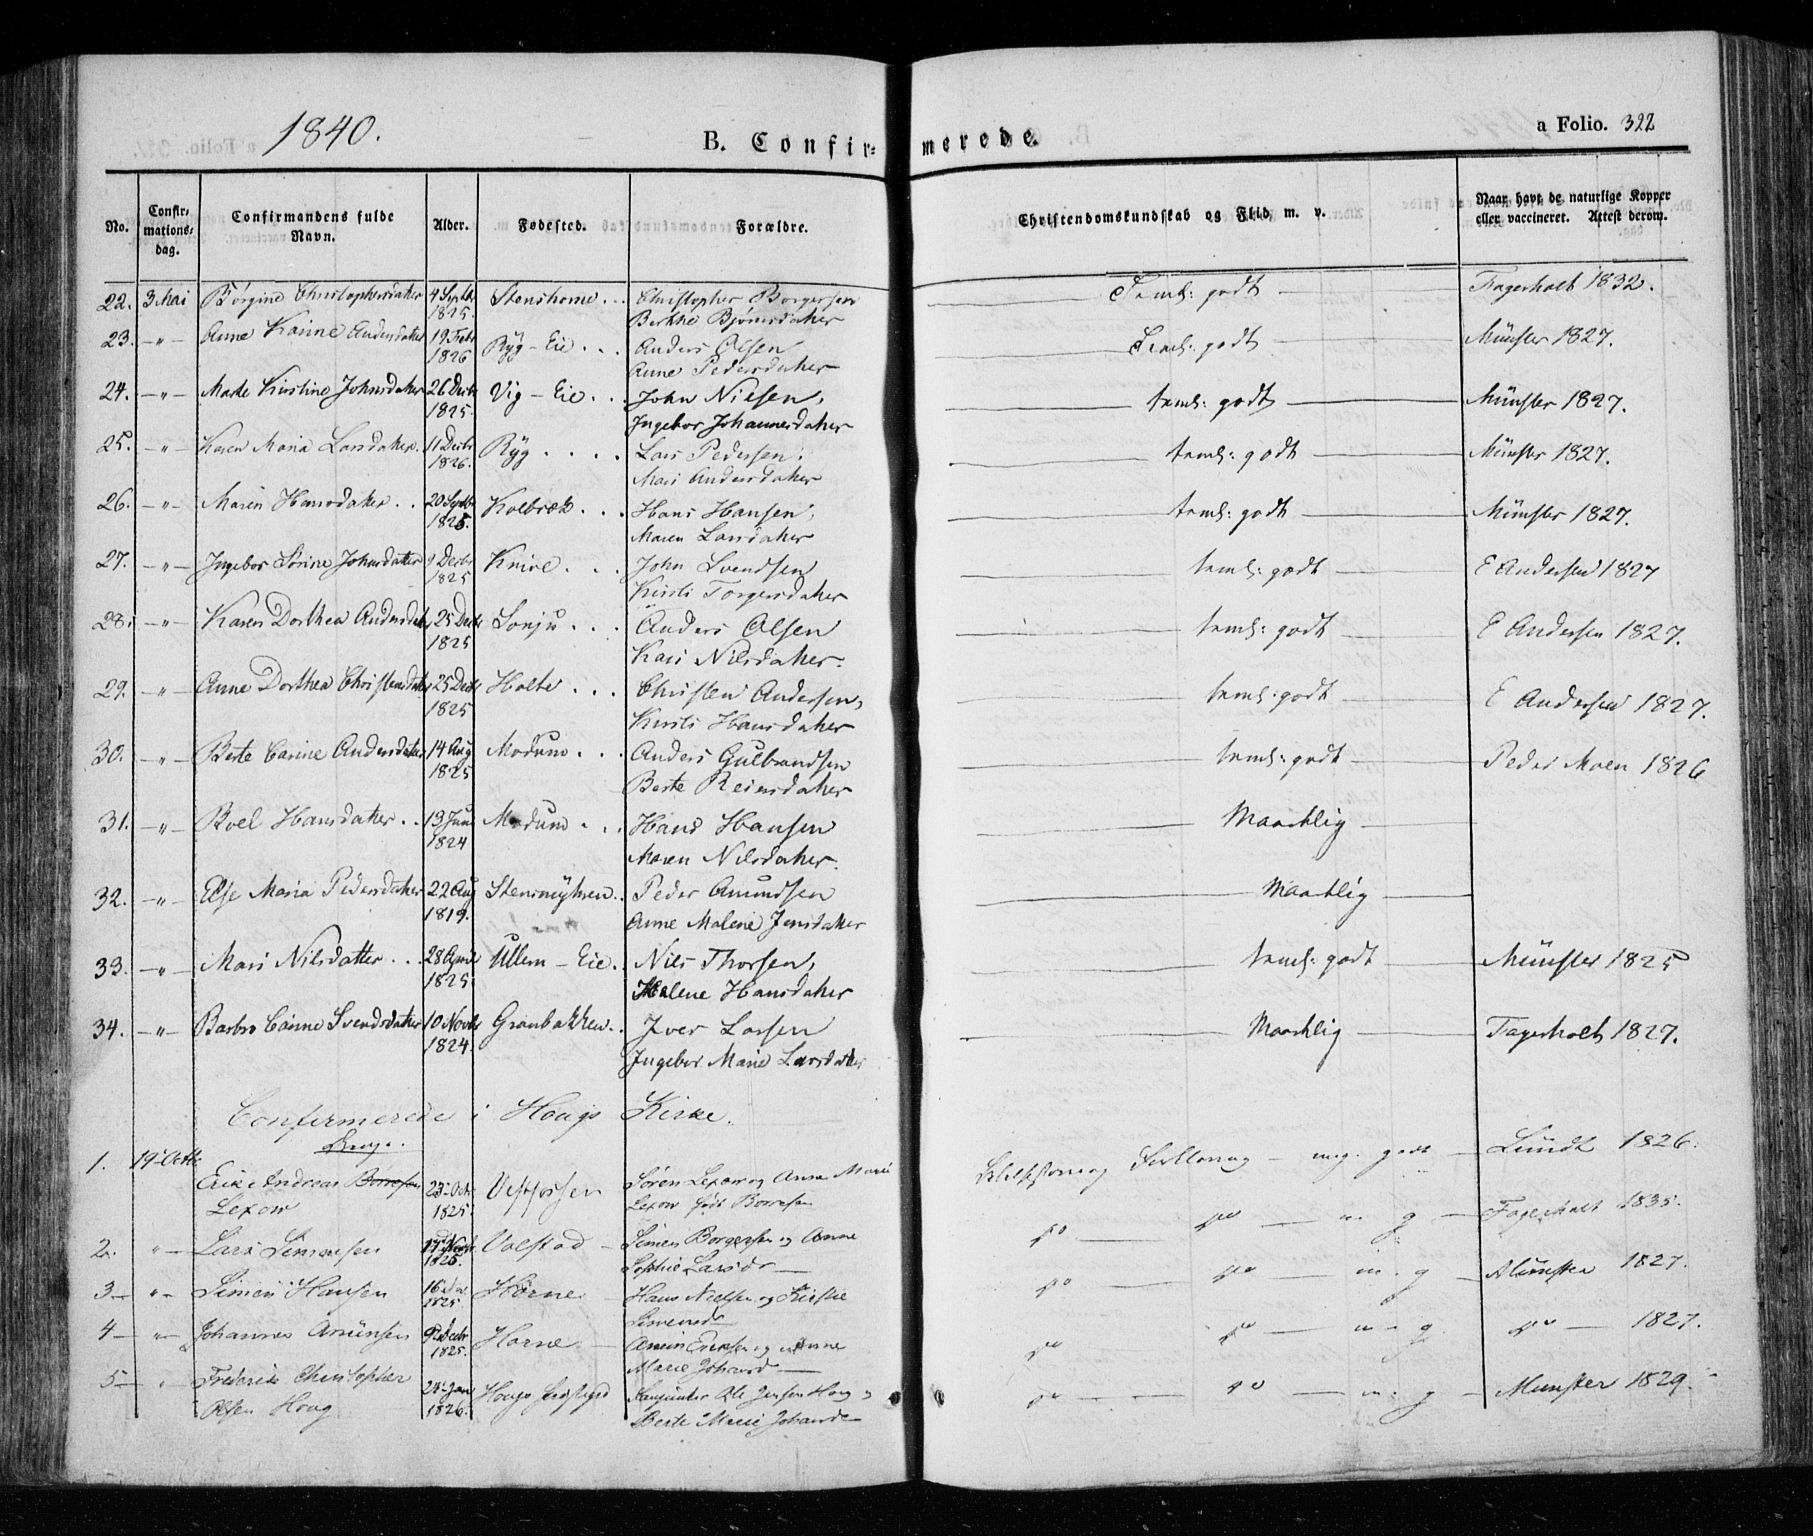 1840.
B. Confirmerede.
a Folio. 322
No.
Confirmations-dag.
Confirmandens fulde Navn.
Alder.
Fødested.
Forældre.
Christendomskundskab og Flid m. v.
Naar havt de naturlige Kopper eller vaccineret. Attest derom.
22. 3 Mai Børgine Christophersdatter 4 Septb. 1825. Stenshorne Christopher Borgersen Berthe Bjørnsdatter Temel: godt Fagerholt 1832.
23. -"- Anne Karine Andersdatter 19 Febr 1826 Ryg-Eie Anders Olsen Anne Pedersdatter Temel: godt Münster 1827.
24. -"- Marte Kirstine Johnsdatter 26 Decbr 1825 Vig-Eie John Nielsen, Ingebor Johannesdatter temel: godt Münster 1827.
25. -"- Karen Maria Larsdatter 11 Decbr 1826. Ryg Lars Pedersen, Mari Andersdatter temel: godt Münster 1827.
26. -"- Maren Hansdatter 20 Septbr 1825. Kolbræk Hans Hansen, Maren Larsdatter temel: godt Münster 1827.
27. -"- Ingebor Sørine Johnsdatter 9 Decbr 1825 Knive John Svendsen Kirsti Torgersdatter temel: godt E Andersen 1827
28. -"- Karen Dorthea Andersdatter 25 Decbr 1825 Sonju Anders Olsen Kari Nilsdatter. temel: godt E Andersen 1827.
29. -"- Anne Dorthea Christensdatter 25 Decbr 1825 Holte Christen Andersen, Kirsti Hansdatter temel: godt E Andersen 1827.
30. -"- Berte Carine Andersdatter 14 Aug 1825 Modum Anders Gulbrandsen Berte Reiersdatter temel: godt Peder Moen 1826
31. -"- Boel Hansdatter 13 Juni 1824 Modum Hans Hansen Maren Nilsdatter. Maadelig
32. -"- Else Maria Pedersdatter 22 Aug 1819. Stensmyhren Peder Amundsen Anne Malene Jensdatter Maadelig
33. -"- Mari Nilsdatter 28 April 1825. Ullern-Eie Nils Thorsen, Malene Hansdatter temel: godt Münster 1825
34. -"- Barbro Carine Svendsdatter 10 Novbr 1824. Granbakken Iver Larsen Ingebor Marie Larsdatter Maadelig Fagerholt 1827.
Confirmerede i Hougs Kirke.
Drenge.
1. 19 Octbr Erik Andreas Borresen Lexow 23 Oct. 1825. Vestfossen Søren Lexow og Anna Marie Lexow født Borresen meg. godt Lundt 1826.
2. " Lars Simensen 17 1825. Volstad Simen Borgersen og Anne Sophie Larsdr do do m. g Fagerholt 1835.
3 " Simen Hansen 16 1825. Horne Hans Nielsen og Kirstie Simensdr do do m. g Münster 1827.
4 " Johannes Amunsen 9 Decbr 1825. Horne Amun Ericksen og Anne Marie Johansd do do m. g. do 1827.
5 " Frederik Christopher Olsen Houg 28 Jan 1826. Hougs Ole Jensen Houg og Berte Marie Johansdr do do m. g Munster 1829.